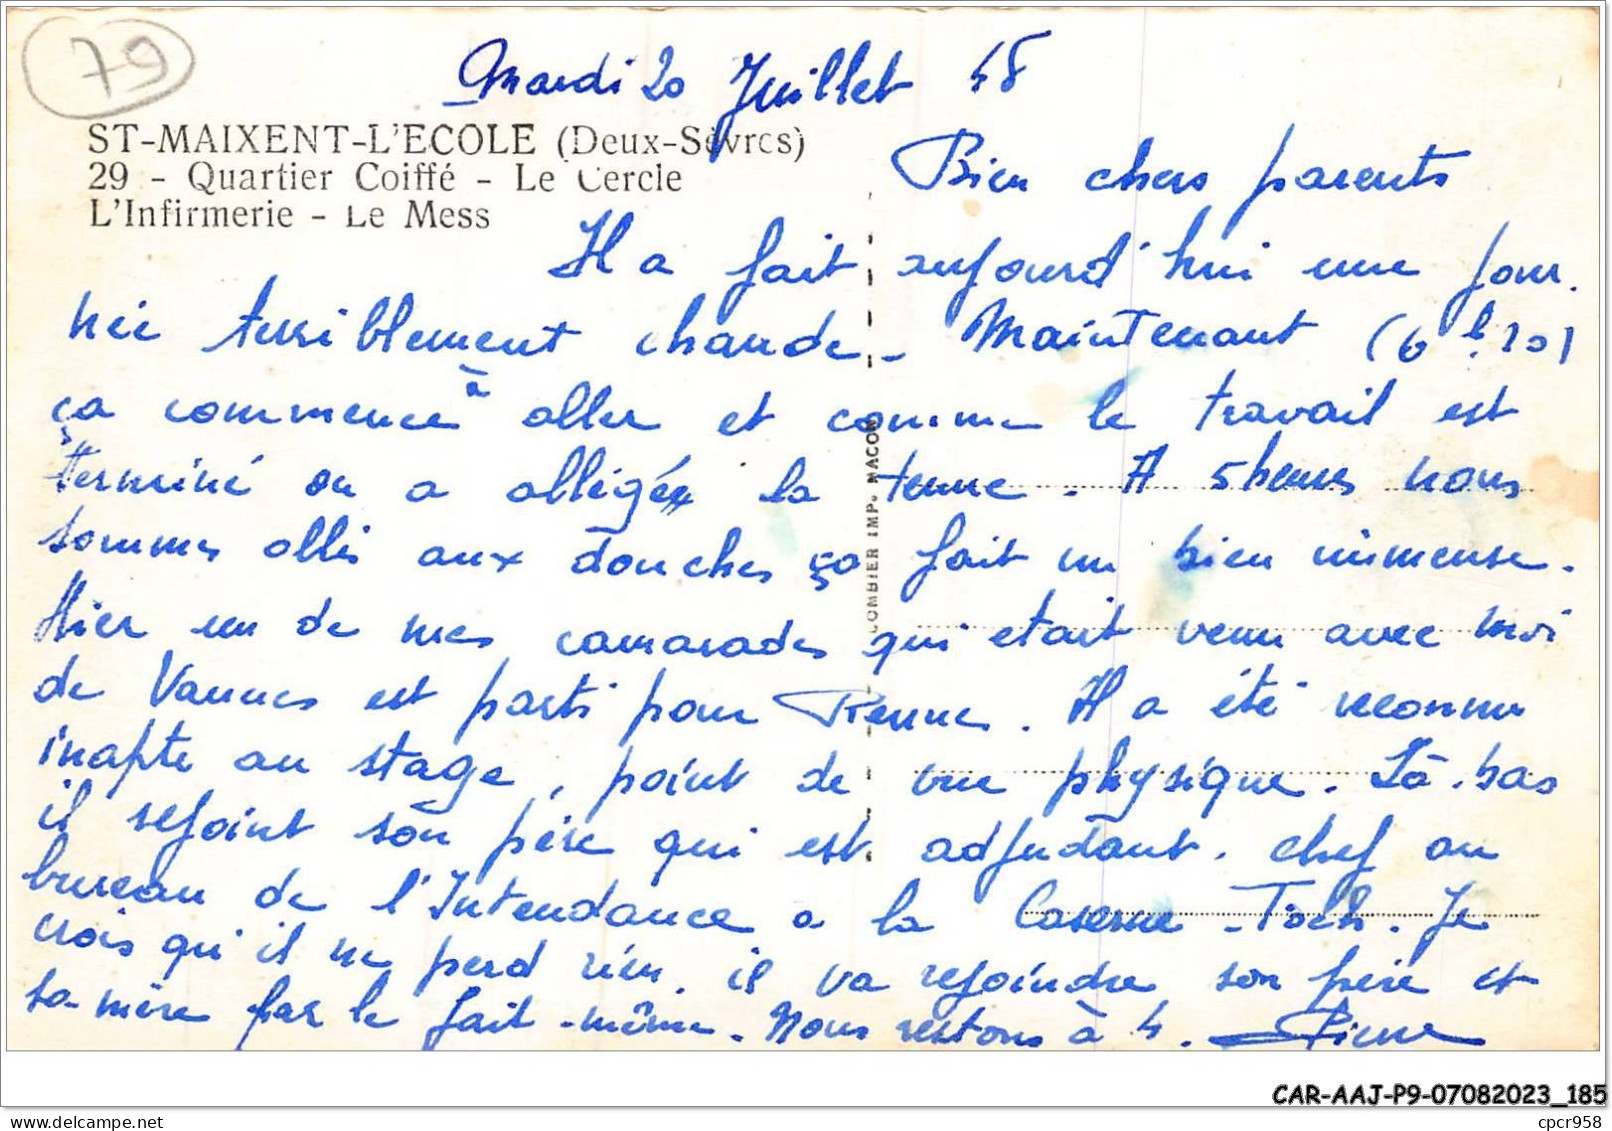 79
Mardi 20 Juillet 48
ST-MAIXENT-L'ECOLE (Deux-Sèvres)
29 - Quartier Coiffé - Le Cercle
L'Infirmerie - Le Mess
Bien chers parents
Il a fait aujourd'hui une jour.
née terriblement chaude - Maintenant (6h.10)
ça commence à aller et comme le travail est
terminé on a allégée la tenue. A 5 heures nous
sommes allés aux douches ça fait un bien immense.
Hier un de mes camarades qui etait venu avec moi
de Vannes est parti pour Rennes. Il a été reconnu
inapte au stage, point de vue physique. Là-bas
il rejoint son père qui est adjudant. chef au
bureau de l'Intendance a la Caserne - Foch. Je
crois qu'il ne perd rien. il va rejoindre son père et
sa mère par le fait-même. Nous restons à 4. Pierre
COMBIER IMP. MACON
CAR-AAJ-P9-07082023_185
www.delcampe.net
cpcr958